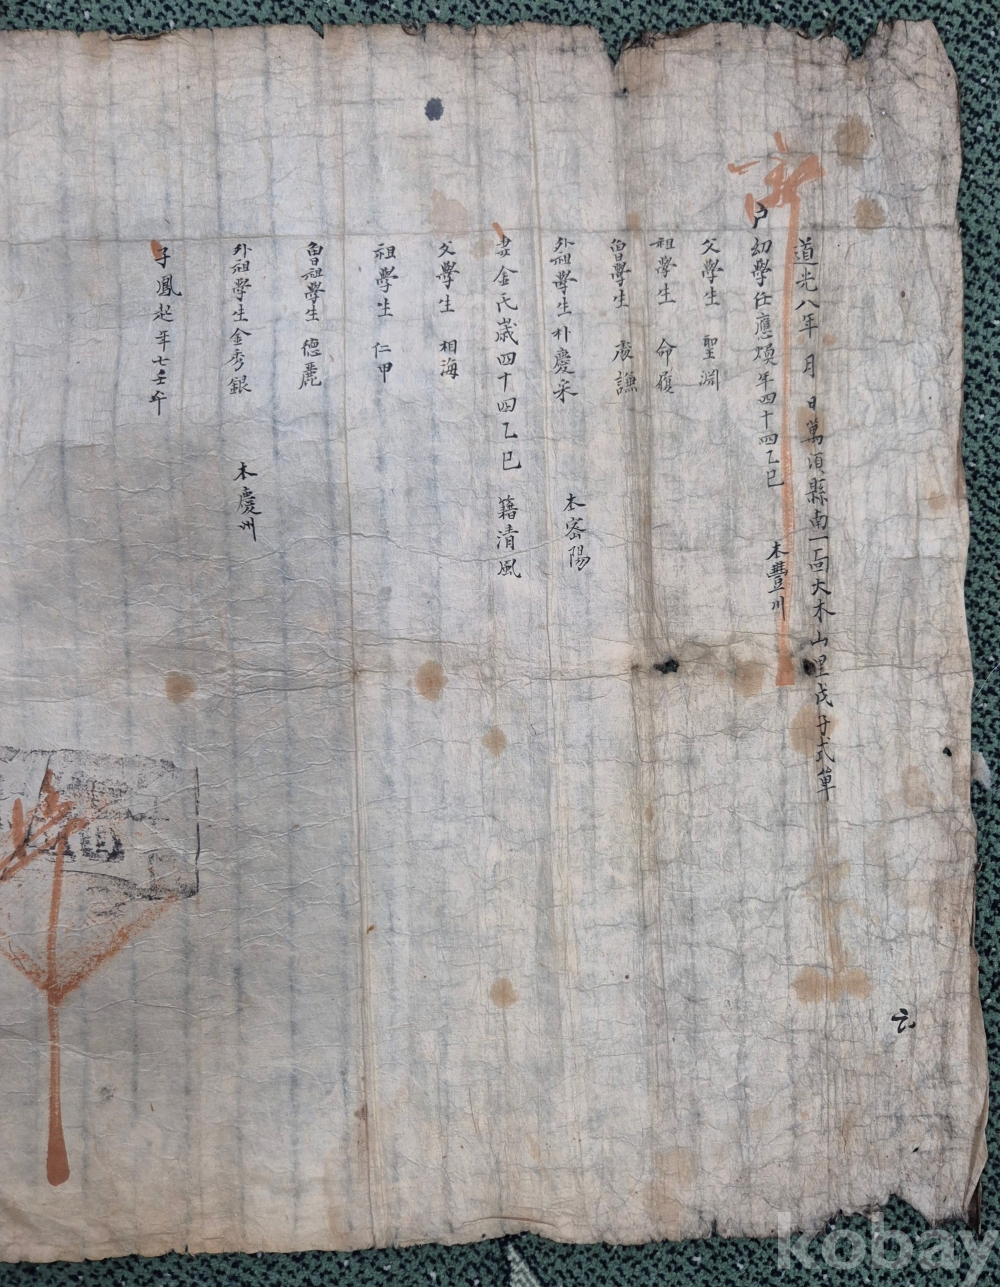 道光八年 月 日萬頃縣南一面大木山里戊子式單
戶幼學任應煥年四十四乙巳 本豊川
父學生 聖淵
祖學生 命履
曾學生 處謙
外祖學生朴慶采 本密陽
妻金氏歲四十四乙巳 籍清風
父學生 相海
祖學生 仁甲
曾祖學生 德麗
外祖學生金秀銀 本慶州
子鳳起年七壬午
kobay